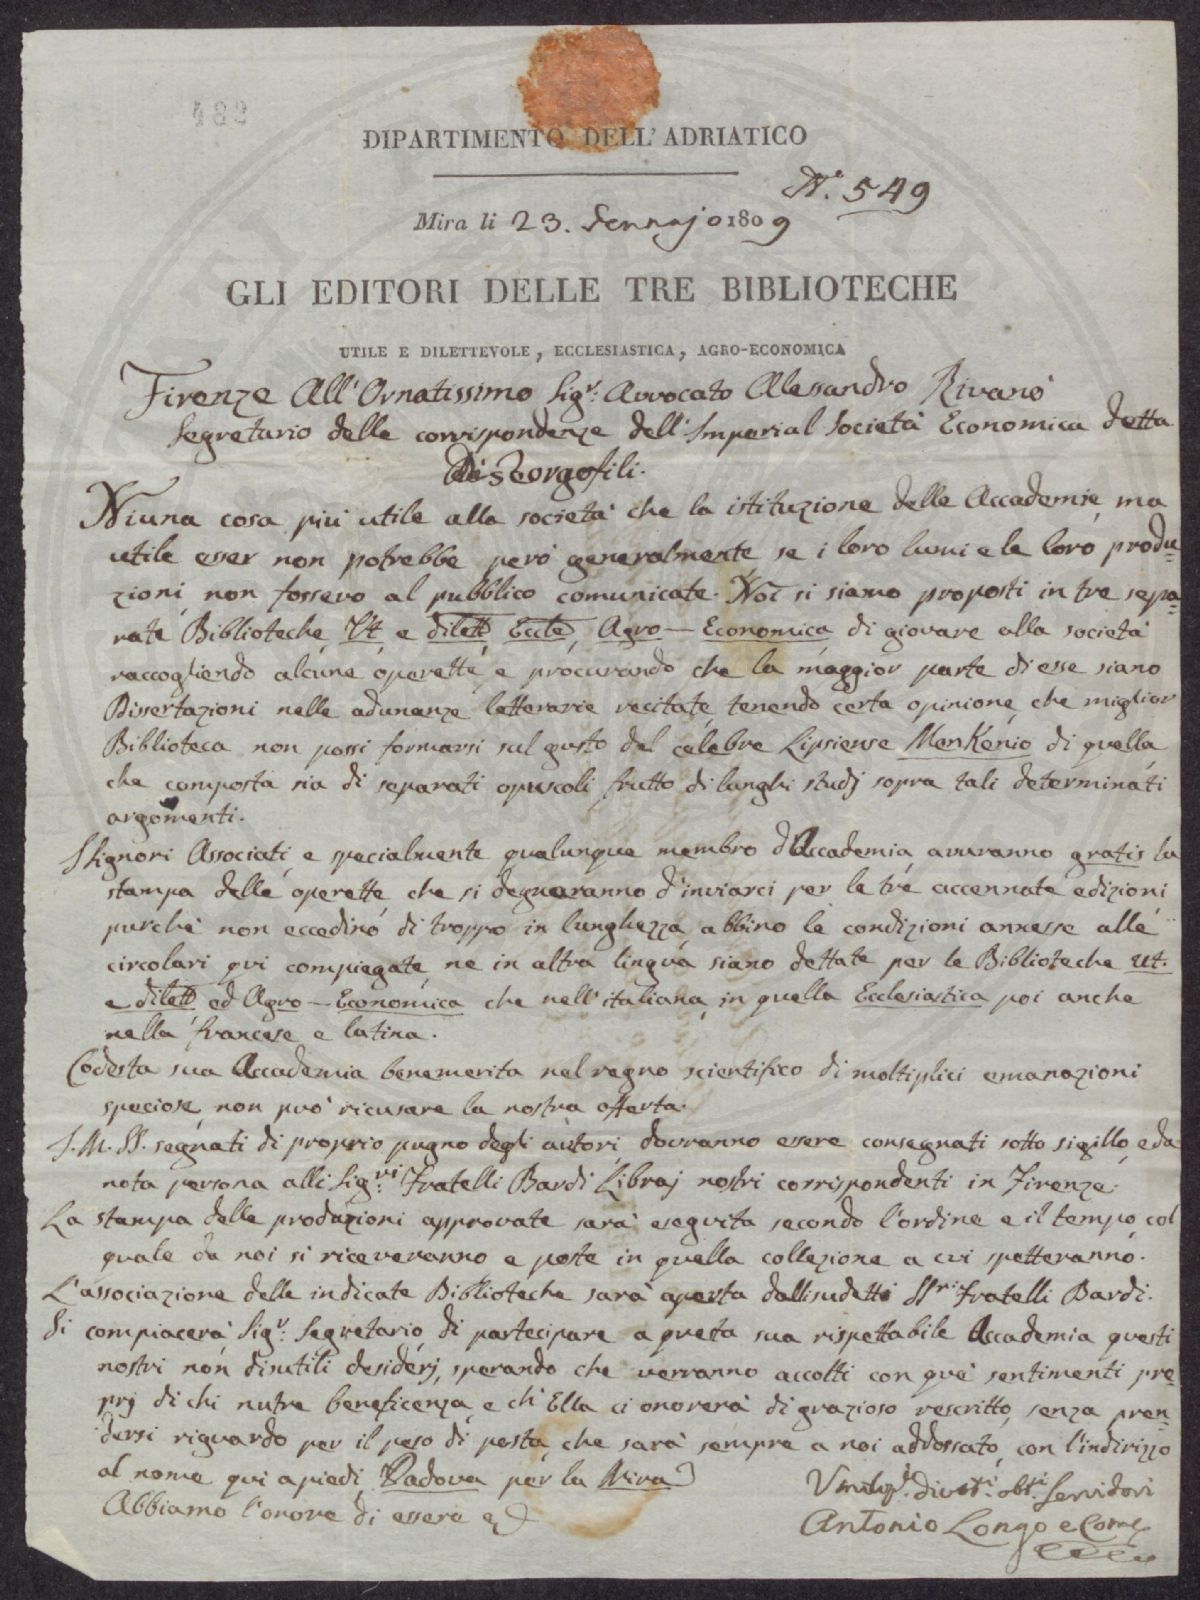 482
DIPARTIMENTO DELL'ADRIATICO
N.° 549
Mira li 23. Gennajo 1809
GLI EDITORI DELLE TRE BIBLIOTECHE
UTILE E DILETTEVOLE, ECCLESIASTICA, AGRO-ECONOMICA
Firenze All'Ornatissimo Sig.r Avvocato Alessandro Rivani
Segretario delle corrispondenze dell'Imperial Società Economica detta
Dei Georgofili.
Niuna cosa più utile alla società che la istituzione delle Accademie, ma
utile esser non potrebbe però generalmente, se i loro lumi e le loro produ-
zioni non fossero al pubblico comunicate. Noi si siamo proposti in tre sepa-
rate Biblioteche, Ut. e dilett. Eccle, Agro-Economica di giovare alla società
raccogliendo alcune operette, e procurando che la maggior parte di esse siano
Dissertazioni nelle adunanze letterarie recitate, tenendo certa opinione, che miglior
Biblioteca non possi formarsi sul gusto del celebre Lipsiense Menkenio di quella
che composta sia di separati opuscoli frutto di lunghi studj sopra tali determinati
argomenti.
I Signori Associati, e specialmente qualunque membro d'Accademia, avuranno gratis la
stampa delle operette, che si degneranno d'inviarci per le tre accennate edizioni
purchè non eccedino di troppo in lunghezza, abbino le condizioni annesse alle
circolari qui compiegate, ne in altra lingua siano dettate per le Biblioteche ut.
e dilett. ed Agro-Economica che nell'italiana, in quella Ecclesiastica poi anche
nella francese, e latina.
Codesta sua Accademia benemerita nel regno scientifico di moltiplici emanazioni
speciose, non può ricusare la nostra offerta.
I. M. SS. segnati di proprio pugno degli autori, dovranno essere consegnati sotto sigillo, e da
nota persona alli Sig.ri Fratelli Bardi Libraj nostri corrispondenti in Firenze.
La stampa delle produzioni approvate sarà eseguita secondo l'ordine e il tempo, col
quale da noi si riceveranno e poste in quella collezione a cui spetteranno.
L'associazione delle indicate Biblioteche sarà aperta dalli sudetti SS.ri fratelli Bardi.
Si compiacerà Sig.r Segretario, di partecipare a questa sua rispettabile Accademia questi
nostri non disutili desiderj, sperando che verranno accolti con que' sentimenti pro-
prj di chi nutre beneficenza, e ch'Ella ci onorerà di grazioso rescritto, senza pren-
dersi riguardo per il peso di posta, che sarà sempre a noi addossato, con l'indirizzo
al nome qui a piedi, Padova per la Mira)
Abbiamo l'onore di essere
divot.i obb.i Servidori
Antonio Longo e Comp.